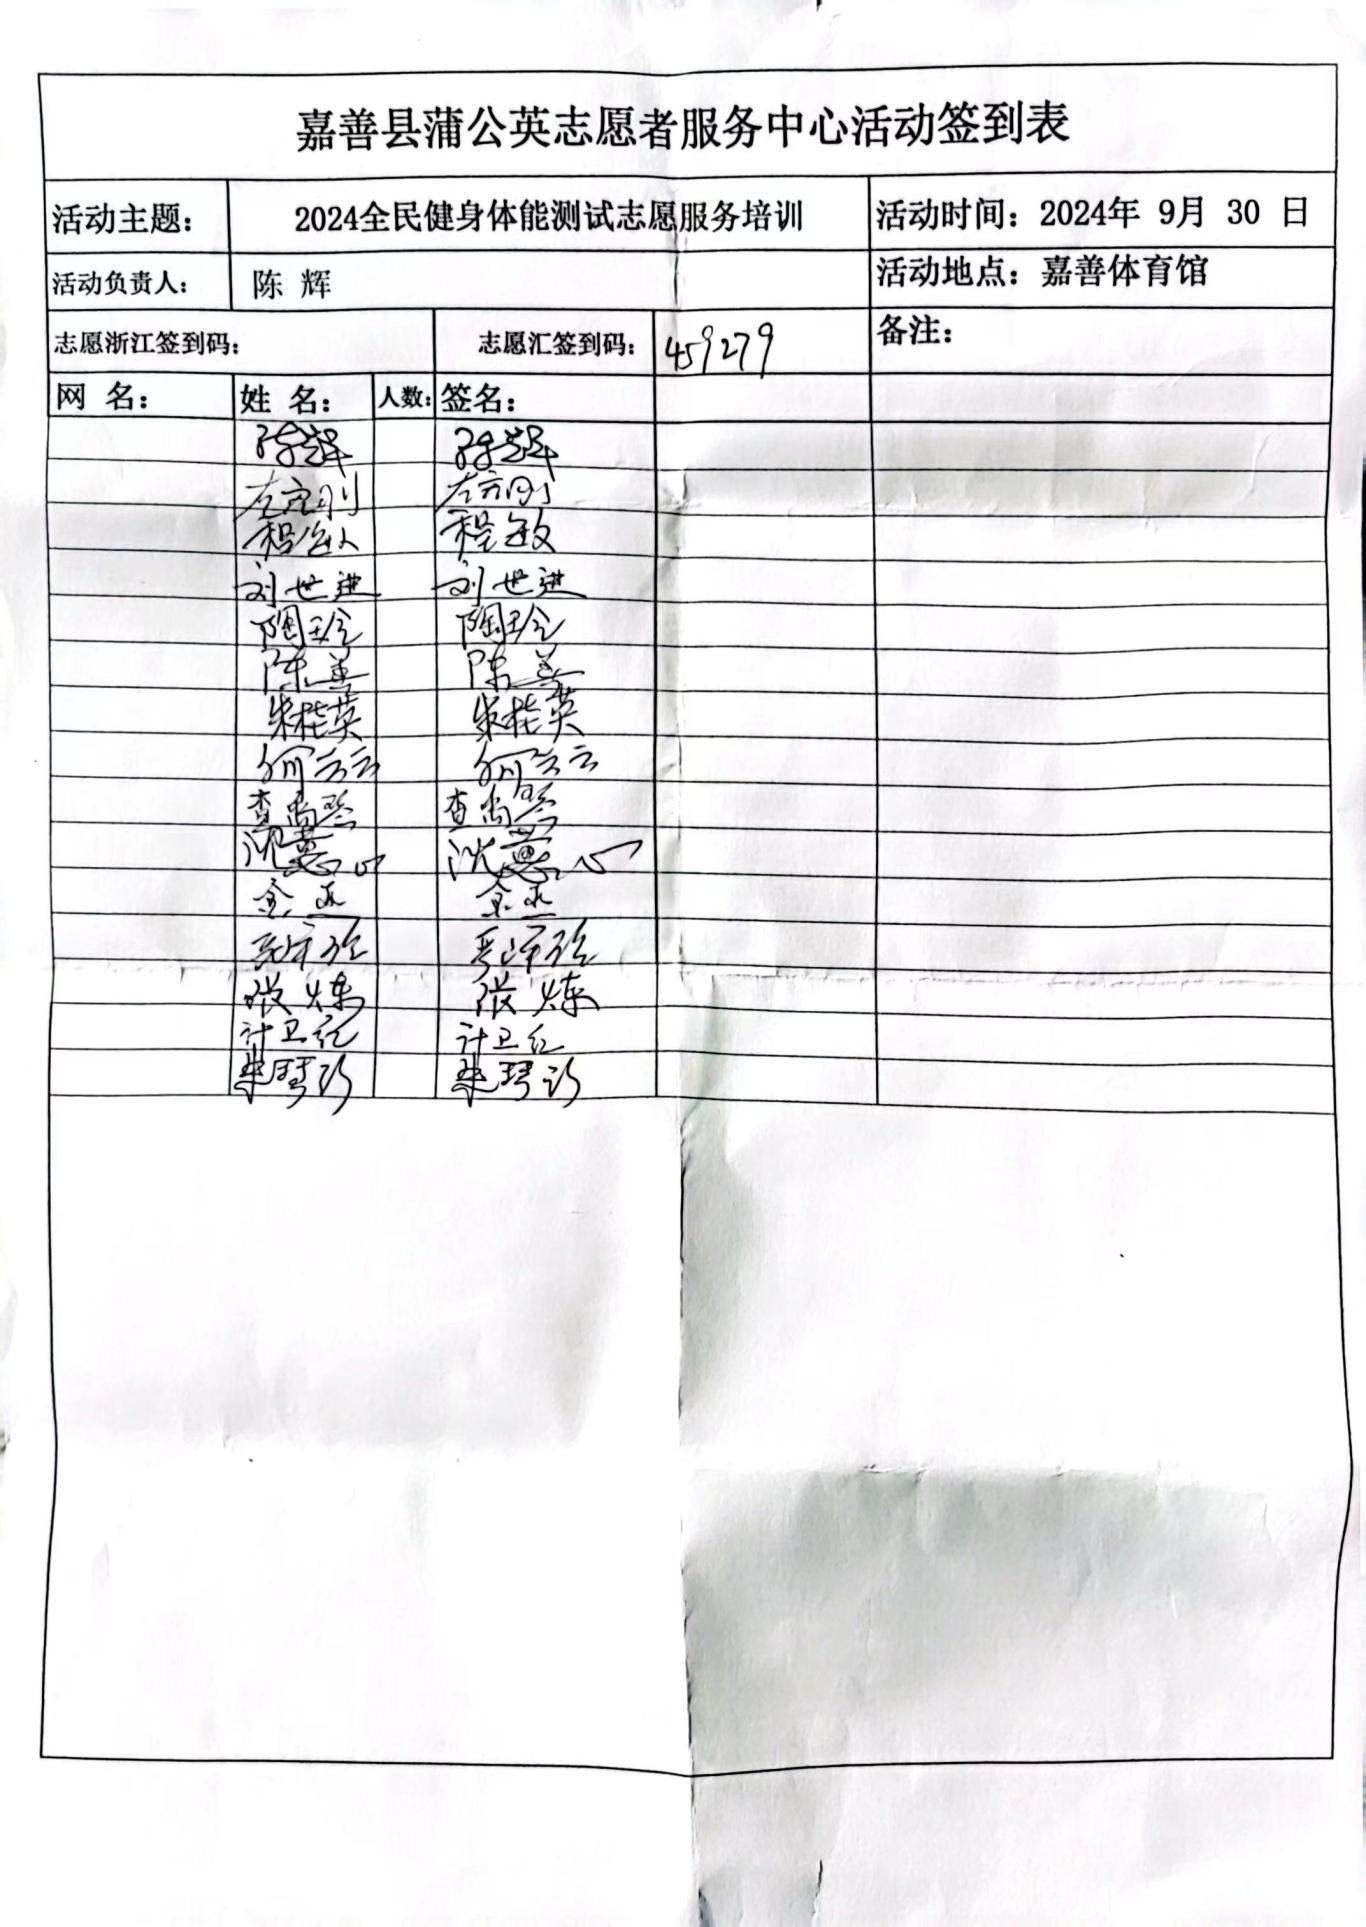 嘉善县蒲公英志愿者服务中心活动签到表
活动主题： 2024全民健身体能测试志愿服务培训 活动时间：2024年 9月 30 日
活动负责人： 陈 辉 活动地点：嘉善体育馆
志愿浙江签到码： 志愿汇签到码： 459279 备注：
网 名： 姓 名： 人数： 签名：
陈辉 陈辉
左方刚 左方刚
程敏 程敏
刘世进 刘世进
陶珍 陶珍
陈 陈
朱桂英 朱桂英
何云 何云
查尚 查尚
沈慧心 沈慧心
金 金
张炼 张炼
计卫红 计卫红
朱琴 朱琴